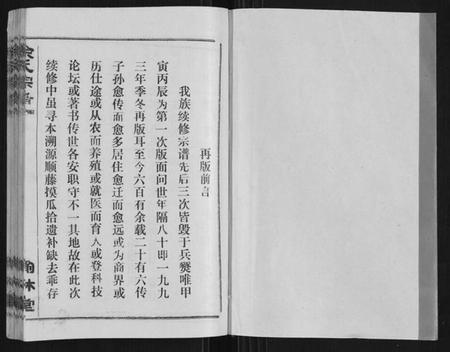 再版前言
我族续修宗谱先后三次皆毁于兵燹唯甲
寅丙辰为第一次版面问世年隔八十即一九九
三年季冬再版耳至今六百有余载二十有六传
子孙愈传而愈多居住愈迁而愈远或为商界或
历仕途或从农而养殖或就医而育人或登科技
论坛或著书传世各安职守不一其地故在此次
续修中虽寻本溯源顺藤摸瓜拾遗补缺去乖存
氏宗谱
林堂